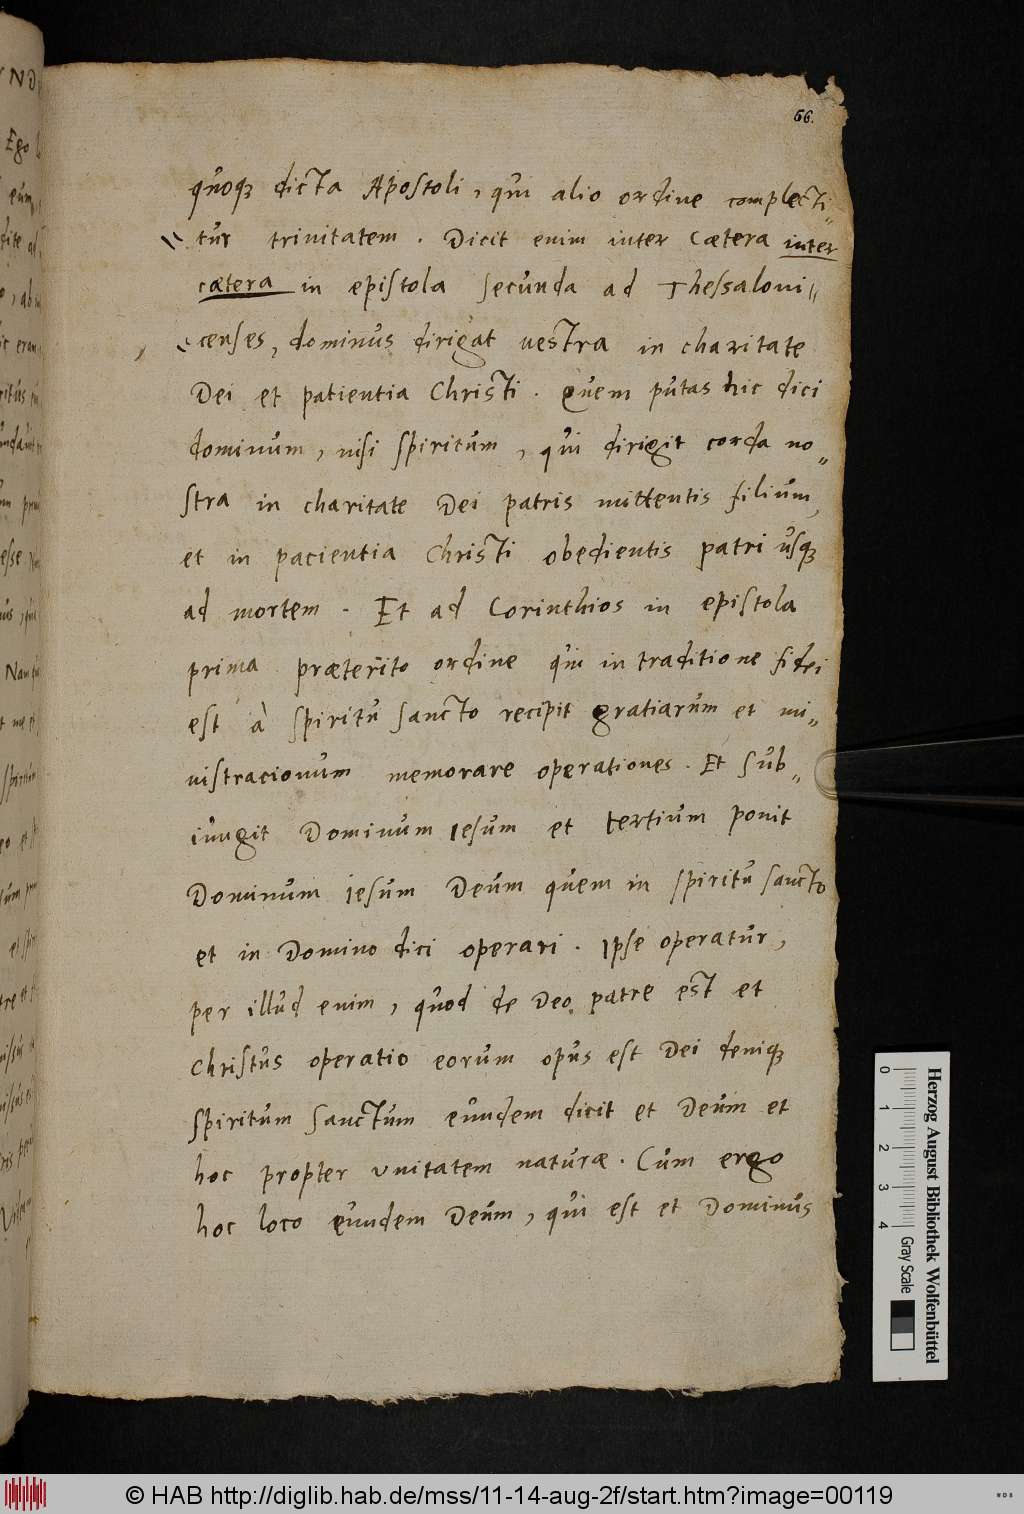 66.
quoqȝ dicta Apostoli, qui alio ordine complecti„
„tur trinitatem. Dicit enim inter Cætera inter
cætera in epistola secunda ad Thessaloni„
„censes, dominus dirigat vestra in charitate
Dei et patientia Christi. Quem putas hic dici
dominum, nisi spiritum, qui dirigit corda no„
stra in charitate Dei patris mittentis filium,
et in pacientia Christi obedientis patri usqȝ
ad mortem. Et ad Corinthios in epistola
prima præterito ordine qui in traditione fidei
est à spiritu sancto recipit gratiarum et mi„
nistracionum memorare operationes. Et sub„
iungit Dominum Iesum et tertium ponit
Dominum Iesum Deum quem in spiritu sancto
et in Domino dici operari. Ipse operatur,
per illud enim, quod de Deo patre est et
Christus operatio eorum opus est Dei deniqȝ
spiritum sanctum eundem dicit et Deum et
hoc propter unitatem naturæ. Cum ergo
hoc loco eundem Deum, qui est et Dominus
Ego
Nam
Herzog August Bibliothek Wolfenbüttel
0 1 2 3 4
Gray Scale
© HAB http://diglib.hab.de/mss/11-14-aug-2f/start.htm?image=00119